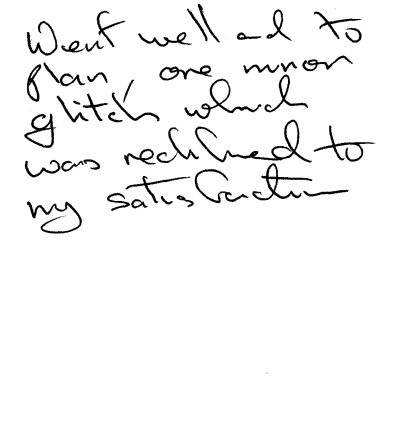 Went well and to
plan, one minor
glitch which
was rectified to
my satisfaction